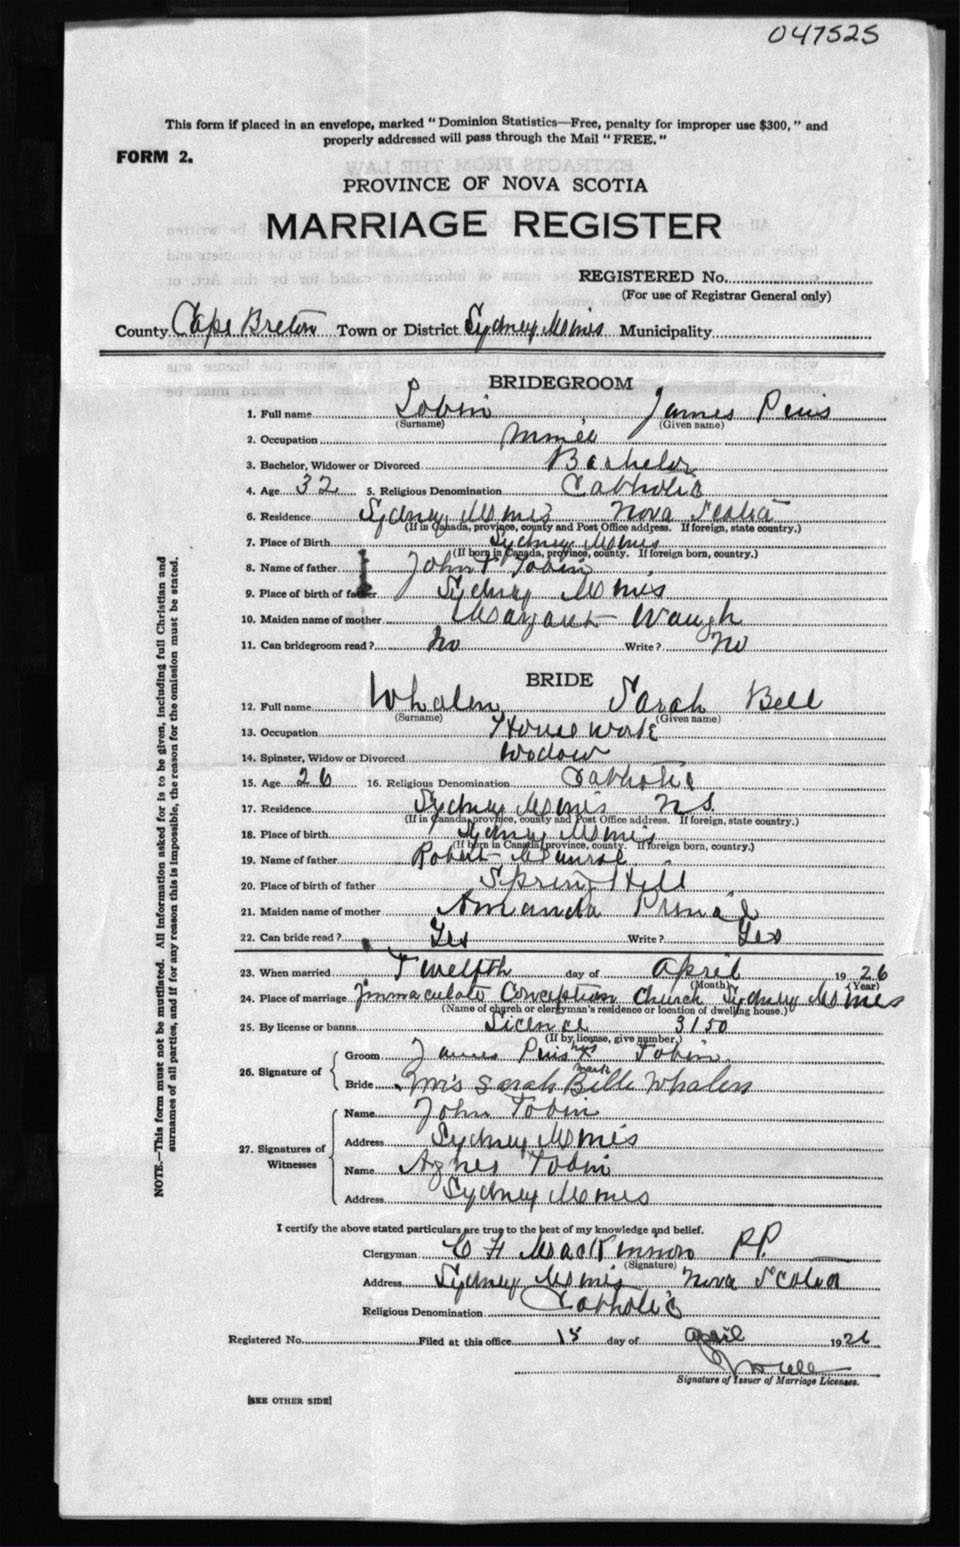 047525
This form if placed in an envelope, marked "Dominion Statistics—Free, penalty for improper use $300," and
properly addressed will pass through the Mail "FREE."
FORM 2.
PROVINCE OF NOVA SCOTIA
MARRIAGE REGISTER
REGISTERED No.
(For use of Registrar General only)
County Cape Breton Town or District Sydney Mines Municipality
BRIDEGROOM
1. Full name Tobin James Pius
(Surname) (Given name)
2. Occupation
3. Bachelor, Widower or Divorced Bachelor
4. Age 32 5. Religious Denomination Catholic
6. Residence Sydney Mines Nova Scotia
(If in Canada, province, county and Post Office address. If foreign, state country.)
7. Place of Birth Sydney Mines
(If born in Canada, province, county. If foreign born, country.)
8. Name of father John Tobin
9. Place of birth of father Sydney Mines
10. Maiden name of mother Margaret Waugh
11. Can bridegroom read? No Write? No
BRIDE
12. Full name Whalen Sarah Bell
(Surname) (Given name)
13. Occupation House work
14. Spinster, Widow or Divorced Widow
15. Age 26 16. Religious Denomination Catholic
17. Residence Sydney Mines N.S.
(If in Canada, province, county and Post Office address. If foreign, state country.)
18. Place of birth Sydney Mines
(If born in Canada, province, county. If foreign born, country.)
19. Name of father Robert Munroe
20. Place of birth of father Spring Hill
21. Maiden name of mother Amanda
22. Can bride read? Yes Write? Yes
23. When married Twelfth day of April 1926
(Month) (Year)
24. Place of marriage Immaculate Conception Church Sydney Mines
(Name of church or clergyman's residence or location of dwelling house.)
25. By license or banns Licence 3150
(If by license, give number.)
26. Signature of
Groom James Pius his X mark Tobin
Bride Mrs Sarah Belle Whalen
27. Signatures of Witnesses
Name John Tobin
Address Sydney Mines
Name Agnes Tobin
Address Sydney Mines
I certify the above stated particulars are true to the best of my knowledge and belief.
Clergyman C F MacKinnon P.P.
(Signature)
Address Sydney Mines Nova Scotia
Religious Denomination Catholic
Registered No. Filed at this office 15 day of April 1926
Signature of Issuer of Marriage Licenses.
[SEE OTHER SIDE]
NOTE.—This form must not be mutilated. All information asked for is to be given, including full Christian and
surnames of all parties, and if for any reason this is impossible, the reason for the omission must be stated.